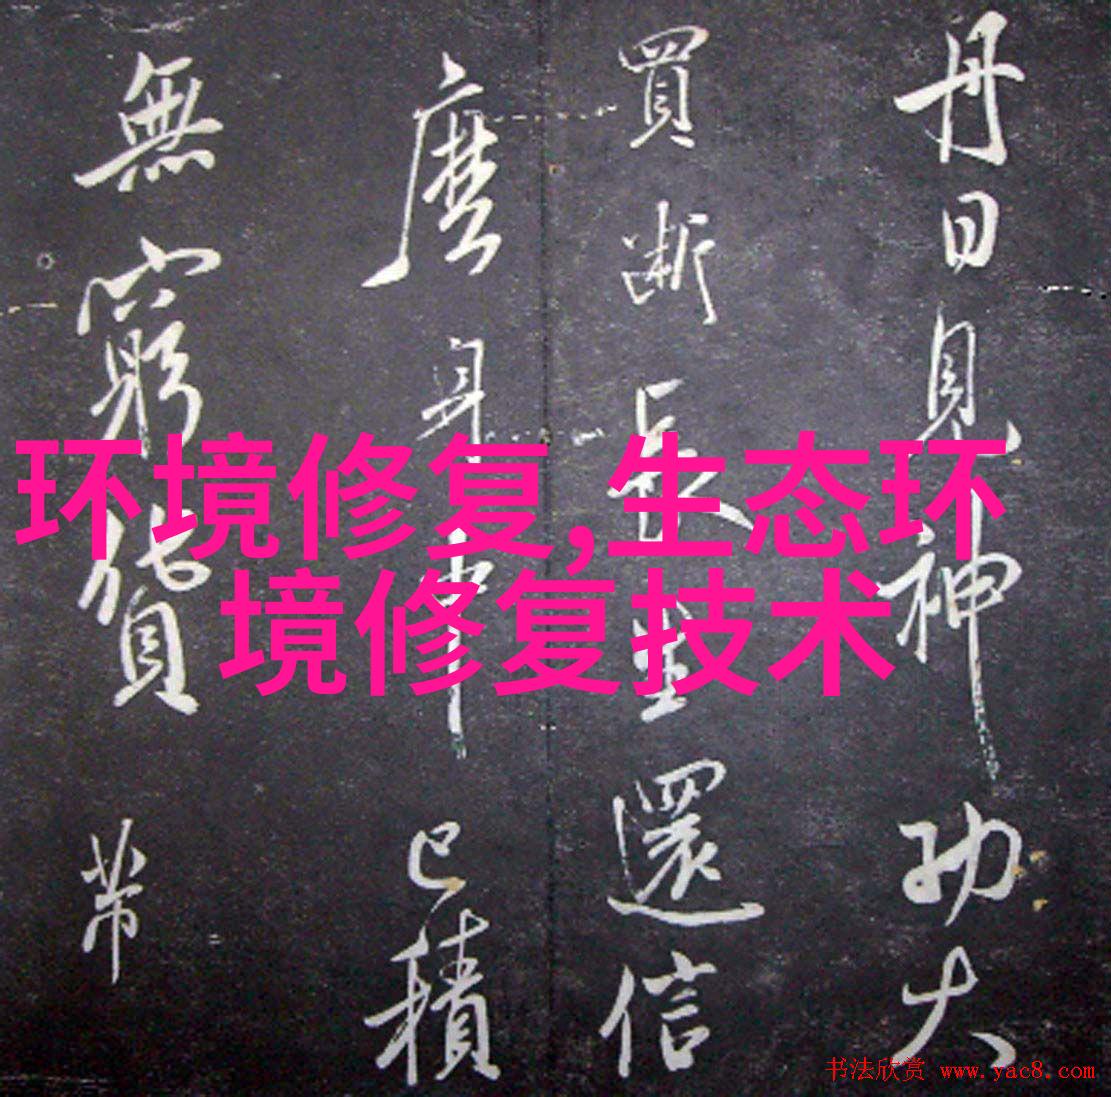 丹日見神功大
買斷長生還信
麼身中已積
無窮貨芾
环境修复,生态环
境修复技术
书法欣赏 www.yac8.com